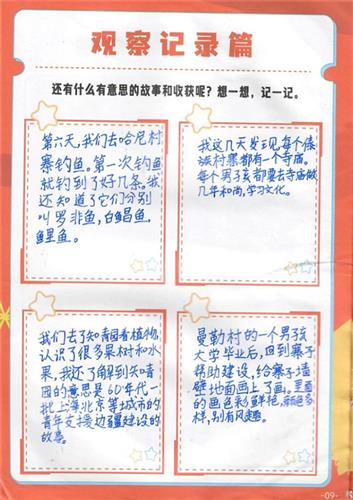 观察记录篇
还有什么有意思的故事和收获呢？想一想，记一记。
第六天，我们去哈尼村
寨钓鱼。第一次钓鱼
就钓到了好几条。我
还知道了它们分别
叫罗非鱼，白鲳鱼，
鲤鱼。
我这几天发现每个傣
族村寨都有一个寺庙。
每个男孩都要去寺庙做
几年和尚，学习文化。
我们去了知青园看植物，
认识了很多果树和水
果，我还了解到知青
园的意思是60年代一
批上海北京等城市的
青年支援边疆建设的
故事。
曼勒村的一个男孩
大学毕业后，回到寨子
帮助建设，给寨子墙
壁地面画上了画。里面
的画色彩鲜艳，颜色多
样，别有风趣。
-09-